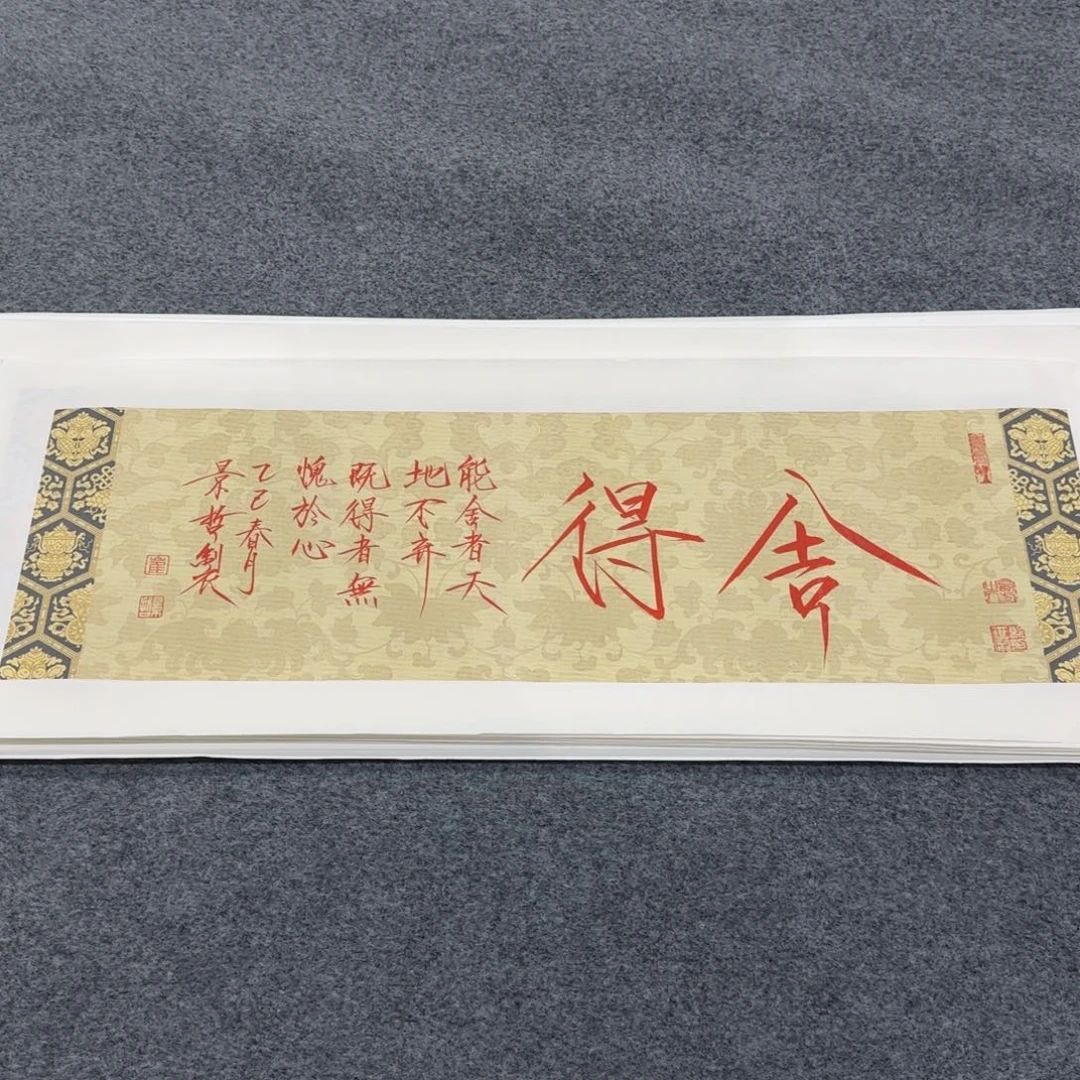 舍得
能舍者天
地不弃
既得者無
愧於心
乙巳春月
景哲製